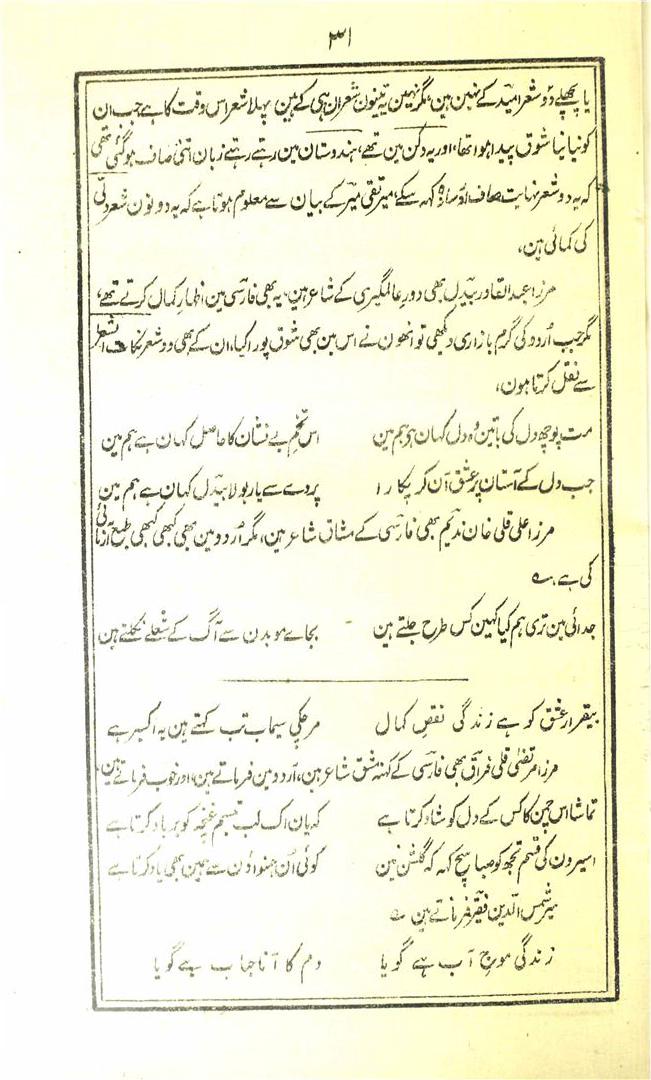 ۳۱
یا پچھلے دو شعر امید کے نہین ہین، مگر نہین یہ تینون شعر ان ہی کے ہین پہلا شعر اس وقت کا ہے جب ان
کو نیا نیا شوق پیدا ہوا تھا، اور یہ دکن مین تھے، ہندوستان مین رہتے رہتے زبان اتنی صاف ہو گئی تھی
کہ یہ دو شعر نہایت صاف اور سادہ کہہ سکے، میر تقی میر کے بیان سے معلوم ہوتا ہے کہ یہ دونون شعر دلی
کی کمائی ہین،
مرزا عبد القادر بیدل بھی دور عالمگیری کے شاعر ہین، یہ بھی فارسی مین اظہار کمال کرتے تھے،
مگر جب اُردو کی گرم بازاری دیکھی تو اُنھون نے اس مین بھی شوق پورا کیا، ان کے بھی دو شعر نکات الشعرا
سے نقل کرتا ہون،
مت پوچھ دل کی باتین وہ دل کہان ہی ہم مین اس تخم بے نشان کا حاصل کہان ہے ہم مین
جب دل کے آستان پر عشق آن کر پکارا پردے سے یار بولا بیدل کہان ہے ہم مین
مرزا علی قلی خان ندیم بھی فارسی کے مشاق شاعر ہین، مگر اُردو مین بھی کبھی کبھی طبع آزمائی
کی ہے، ؎
جدائی مین تری ہم کیا کہین کس طرح جلتے ہین بجاے مو بدن سے آگ کے شعلے نکلتے ہین
بیقرار عشق کو ہے زندگی نقص کمال مر چکے سیماب تب کہتے ہین یہ اکسیر ہے
مرزا مرتضیٰ قلی فراق بھی فارسی کے کہنہ مشق شاعر ہین، اُردو مین فرماتے ہین، اور خوب فرماتے ہین،
تماشا اس چمن کا کس کے دل کو شاد کرتا ہے کہ یان اک لب تبسم غنچہ کو برباد کرتا ہے
اسیرون کی قسم تجھ کو صبا سچ کہہ کہ گلشن مین کوئی اُن ہمنواؤن سے ہمین بھی یاد کرتا ہے
میر شمس الدین فقیر فرماتے ہین ؎
زندگی موج آب ہے گویا دم کا آنا حباب ہے گویا